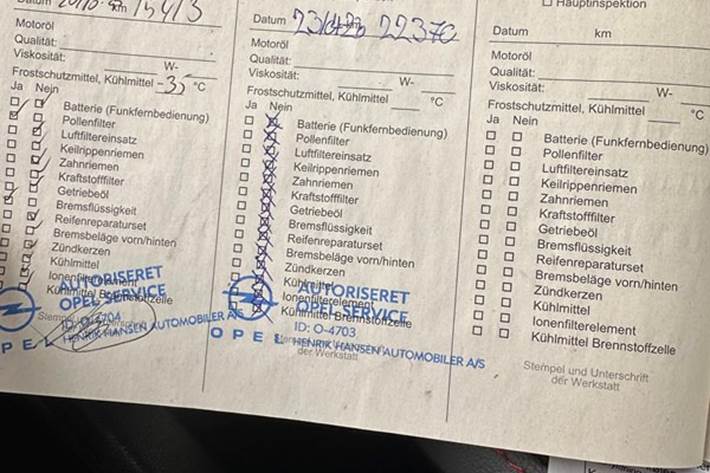 Datum km 
Motoröl
Qualität:
Viskosität: W-
Frostschutzmittel, Kühlmittel °C
Ja Nein
Batterie (Funkfernbedienung)
Pollenfilter
Luftfiltereinsatz
Keilrippenriemen
Zahnriemen
Kraftstofffilter
Getriebeöl
Bremsflüssigkeit
Reifenreparaturset
Bremsbeläge vorn/hinten
Zündkerzen
Kühlmittel
Ionenfilterelement
Kühlmittel Brennstoffzelle
AUTORISERET
OPEL SERVICE
HENRIK HANSEN AUTOMOBILER A/S
Datum 22370
Motoröl
Qualität:
Viskosität: W-
Frostschutzmittel, Kühlmittel °C
Ja Nein
Batterie (Funkfernbedienung)
Pollenfilter
Luftfiltereinsatz
Keilrippenriemen
Zahnriemen
Kraftstofffilter
Getriebeöl
Bremsflüssigkeit
Reifenreparaturset
Bremsbeläge vorn/hinten
Zündkerzen
Kühlmittel
Ionenfilterelement
Kühlmittel Brennstoffzelle
AUTORISERET
OPEL SERVICE
ID: O-4703
OPEL HENRIK HANSEN AUTOMOBILER A/S
der Werkstatt
Hauptinspektion
Datum km
Motoröl
Qualität:
Viskosität: W-
Frostschutzmittel, Kühlmittel °C
Ja Nein
Batterie (Funkfernbedienung)
Pollenfilter
Luftfiltereinsatz
Keilrippenriemen
Zahnriemen
Kraftstofffilter
Getriebeöl
Bremsflüssigkeit
Reifenreparaturset
Bremsbeläge vorn/hinten
Zündkerzen
Kühlmittel
Ionenfilterelement
Kühlmittel Brennstoffzelle
Stempel und Unterschrift
der Werkstatt